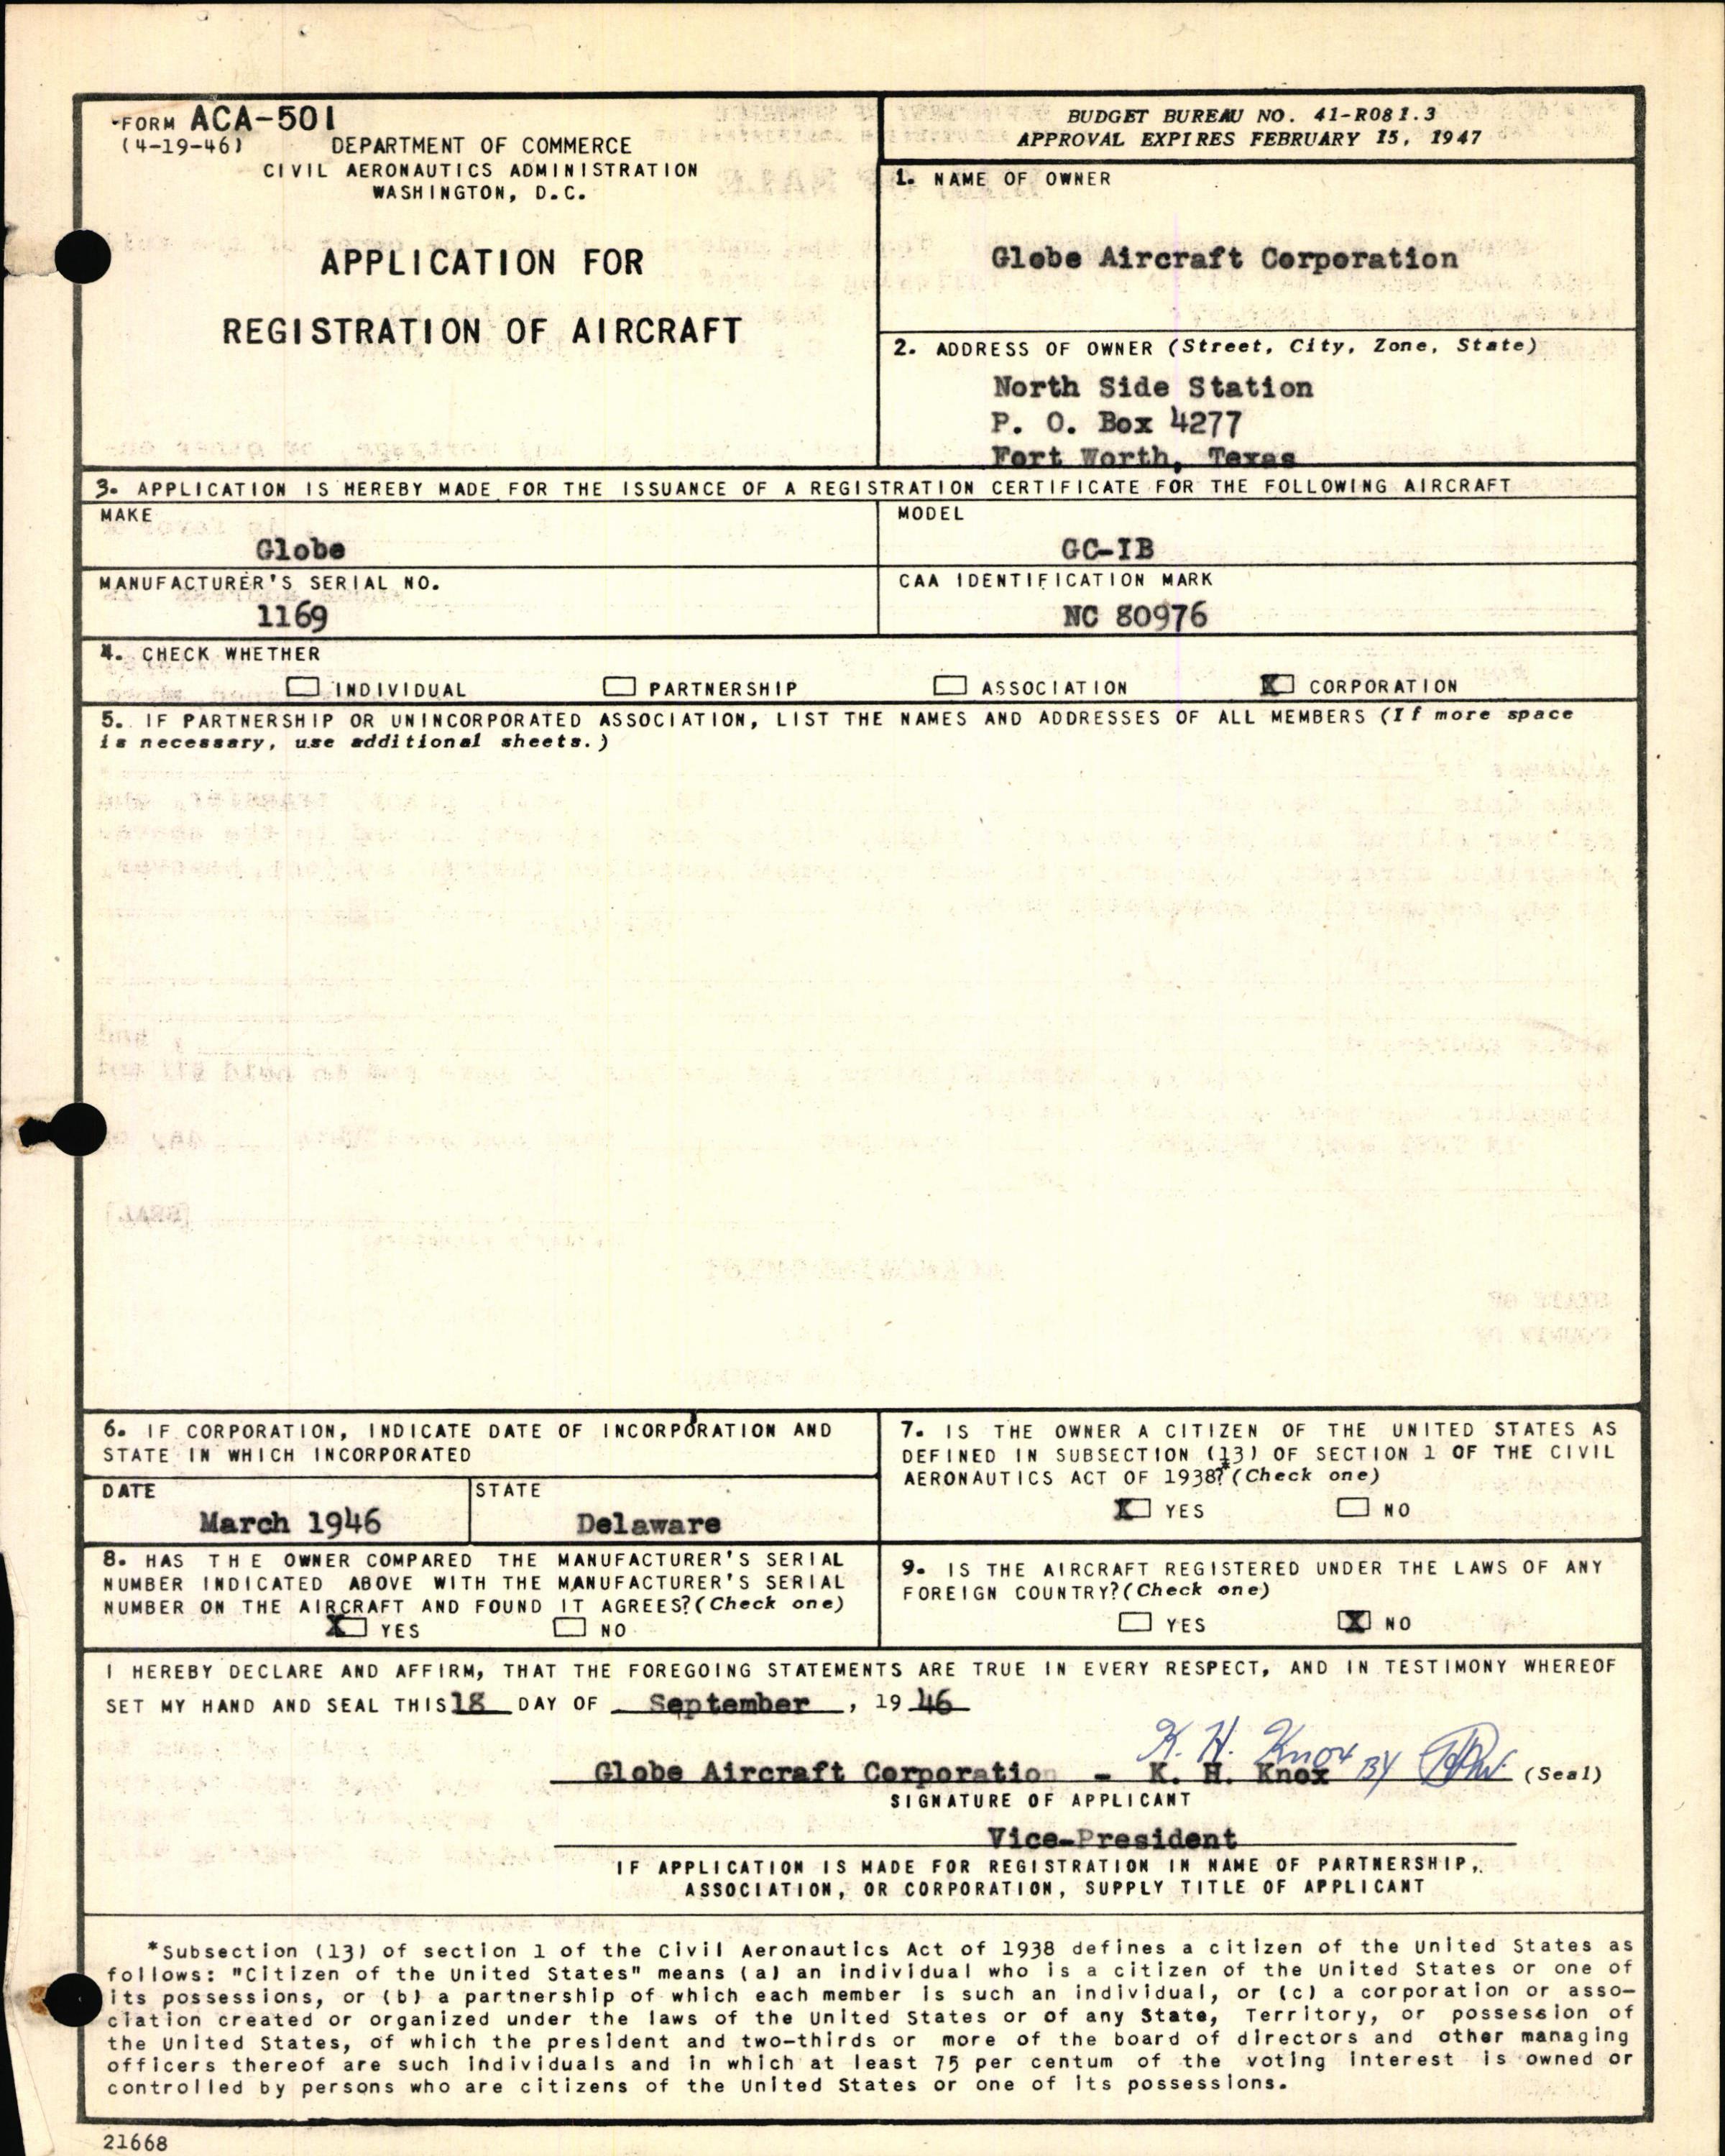 FORM ACA-501
(4-19-46)
DEPARTMENT OF COMMERCE
CIVIL AERONAUTICS ADMINISTRATION
WASHINGTON, D.C.
APPLICATION FOR
REGISTRATION OF AIRCRAFT
BUDGET BUREAU NO. 41-R081.3
APPROVAL EXPIRES FEBRUARY 15, 1947
1. NAME OF OWNER
Globe Aircraft Corporation
2. ADDRESS OF OWNER (Street, City, Zone, State)
North Side Station
P. O. Box 4277
Fort Worth, Texas
3. APPLICATION IS HEREBY MADE FOR THE ISSUANCE OF A REGISTRATION CERTIFICATE FOR THE FOLLOWING AIRCRAFT
MAKE
Globe
MODEL
GC-1B
MANUFACTURER'S SERIAL NO.
1169
CAA IDENTIFICATION MARK
NC 80976
4. CHECK WHETHER
INDIVIDUAL PARTNERSHIP ASSOCIATION X CORPORATION
5. IF PARTNERSHIP OR UNINCORPORATED ASSOCIATION, LIST THE NAMES AND ADDRESSES OF ALL MEMBERS (If more space
is necessary, use additional sheets.)
6. IF CORPORATION, INDICATE DATE OF INCORPORATION AND
STATE IN WHICH INCORPORATED
DATE
March 1946
STATE
Delaware
7. IS THE OWNER A CITIZEN OF THE UNITED STATES AS
DEFINED IN SUBSECTION (13) OF SECTION 1 OF THE CIVIL
AERONAUTICS ACT OF 1938?* (Check one)
X YES NO
8. HAS THE OWNER COMPARED THE MANUFACTURER'S SERIAL
NUMBER INDICATED ABOVE WITH THE MANUFACTURER'S SERIAL
NUMBER ON THE AIRCRAFT AND FOUND IT AGREES? (Check one)
X YES NO
9. IS THE AIRCRAFT REGISTERED UNDER THE LAWS OF ANY
FOREIGN COUNTRY? (Check one)
YES X NO
I HEREBY DECLARE AND AFFIRM, THAT THE FOREGOING STATEMENTS ARE TRUE IN EVERY RESPECT, AND IN TESTIMONY WHEREOF
SET MY HAND AND SEAL THIS 18 DAY OF September, 19 46
K. H. Knox BY
Globe Aircraft Corporatio - K. H. Knox (Seal)
SIGNATURE OF APPLICANT
Vice-President
IF APPLICATION IS MADE FOR REGISTRATION IN NAME OF PARTNERSHIP,
ASSOCIATION, OR CORPORATION, SUPPLY TITLE OF APPLICANT
*Subsection (13) of section 1 of the Civil Aeronautics Act of 1938 defines a citizen of the United States as
follows: "Citizen of the United States" means (a) an individual who is a citizen of the United States or one of
its possessions, or (b) a partnership of which each member is such an individual, or (c) a corporation or asso-
ciation created or organized under the laws of the United States or of any State, Territory, or possession of
the United States, of which the president and two-thirds or more of the board of directors and other managing
officers thereof are such individuals and in which at least 75 per centum of the voting interest is owned or
controlled by persons who are citizens of the United States or one of its possessions.
21668